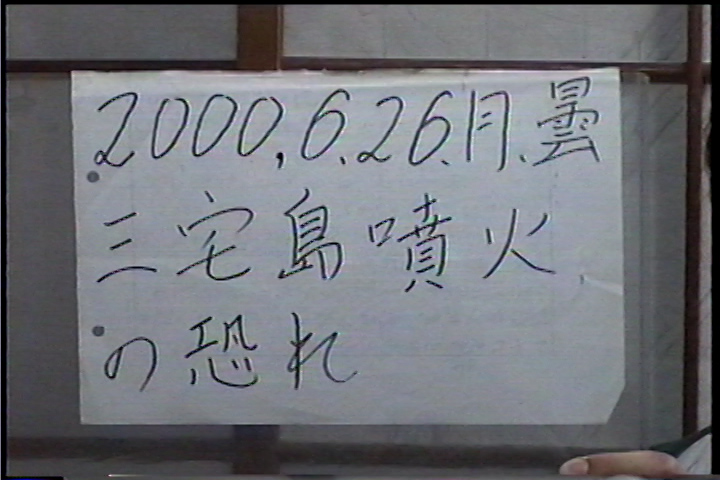 2000,6.26.月.曇
三宅島噴火
の恐れ